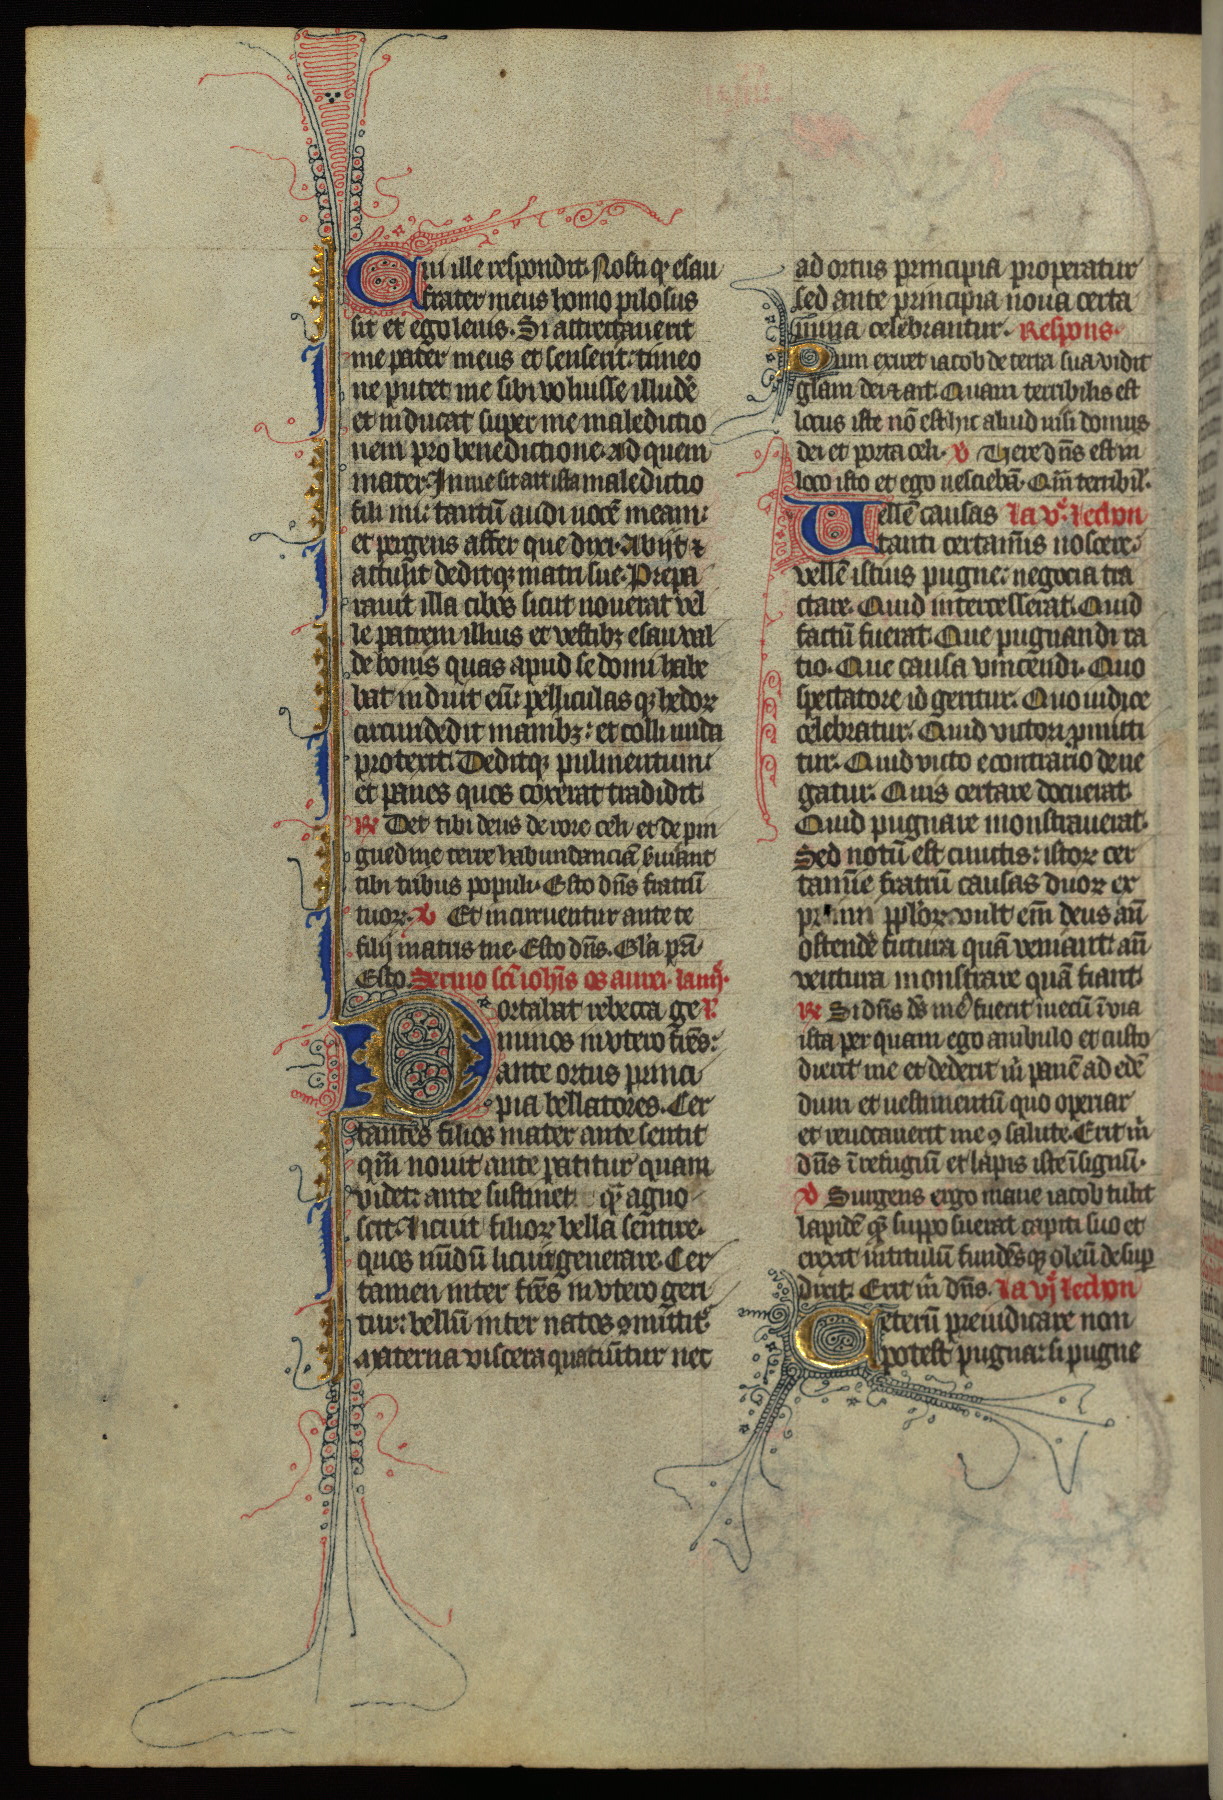 Cui ille respondit. Nosti qꝫ esau
frater meus homo pilosus
sit et ego lenis. Si attrectauerit
me pater meus et senserit: timeo
ne putet me sibi voluisse illudẽ
et inducat super me maledictio
nem pro benedictione. ad quem
mater. In me sit ait ista maledictio
fili mi: tantũ audi uocẽ meam:
et pergens affer que dixi. Abijt ⁊
attulit deditqꝫ matri sue. Prepa
rauit illa cibos sicut nouerat vel
le patrem illius et vestibꝫ esau val
de bonis quas apud se domi habe
bat induit eũ: pelliculasqꝫ hedoꝝ
circũdedit manibꝫ: et colli nuda
protexit. Deditqꝫ pulmentum:
et panes quos coxerat tradidit.
℟ Det tibi deus de rore celi et de pin
guedine terre habundanciã seruiant
tibi tribus populi. Esto dñs fratrũ
tuoꝝ. ℣ Et incuruentur ante te
filij matris tue. Esto dñs. Gl'a pr̃i.
Esto. Sermo sc̃i ioh̃is os aurei. la iiij.
Portabat rebecca ge l'.
minos in vtero fr̃es:
ante ortus princi
pia bellatores. Cer
tantes filios mater ante sentit
qm̃ nouit ante patitur quam
videt: ante sustinet qꝫ agno
scit. Licuit filioꝝ bella sentire.
quos nũdũ licuit generare. Cer
tamen inter fr̃es in vtero geri
tur: bellũ inter natos ꝯmittit᷑
Materna viscera quatiũtur nec
ad ortus principia properatur
sed ante principia noua certa
mina celebrantur. Respons.
Dum exiret iacob de terra sua vidit
gl'am dei ⁊ ait. Quam terribilis est
locus iste nõ est hic aliud nisi domus
dei et porta celi. ℣ Uere dñs est in
loco isto et ego nesciebã. Qm̃ terribil'.
Uellẽ causas la v. lecton
tanti certaminis noscere:
vellẽ istius pugne: negocia tra
ctare. Quid intercesserat. Quid
factũ fuerat. Que pugnandi ra
tio. Que causa vincendi. Quo
spectatore id geritur. Quo iudice
celebratur. Quid victori ꝓmitti
tur. Quid victo econtrario dene
gatur. Quis certare docuerat.
Quid pugnare monstrauerat.
Sed notũ est cunctis: istoꝝ cer
tamĩe fratrũ causas duoꝝ ex
primi pp̃loꝝ. vult em̃ deus añ
ostendẽ futura quã veniant: añ
ventura monstrare quã fiant.
℟ Si dñs ds̃ me9 fuerit mecũ ĩ via
ista per quam ego ambulo et custo
dierit me et dederit m̃ panẽ ad edẽ
dum et uestimentũ quo operiar
et reuocauerit me ꝯ salute. Erit m̃
dñs ĩ refugiũ et lapis iste ĩ signũ.
℣ Surgens ergo mane iacob tulit
lapidẽ quẽ supposuerat capiti suo et
erexit in titulũ fundẽsqꝫ oleũ desup
dixit. Erit m̃ dñs. la vj lecton
Ceterũ preiudicare non
potest pugna: si pugne